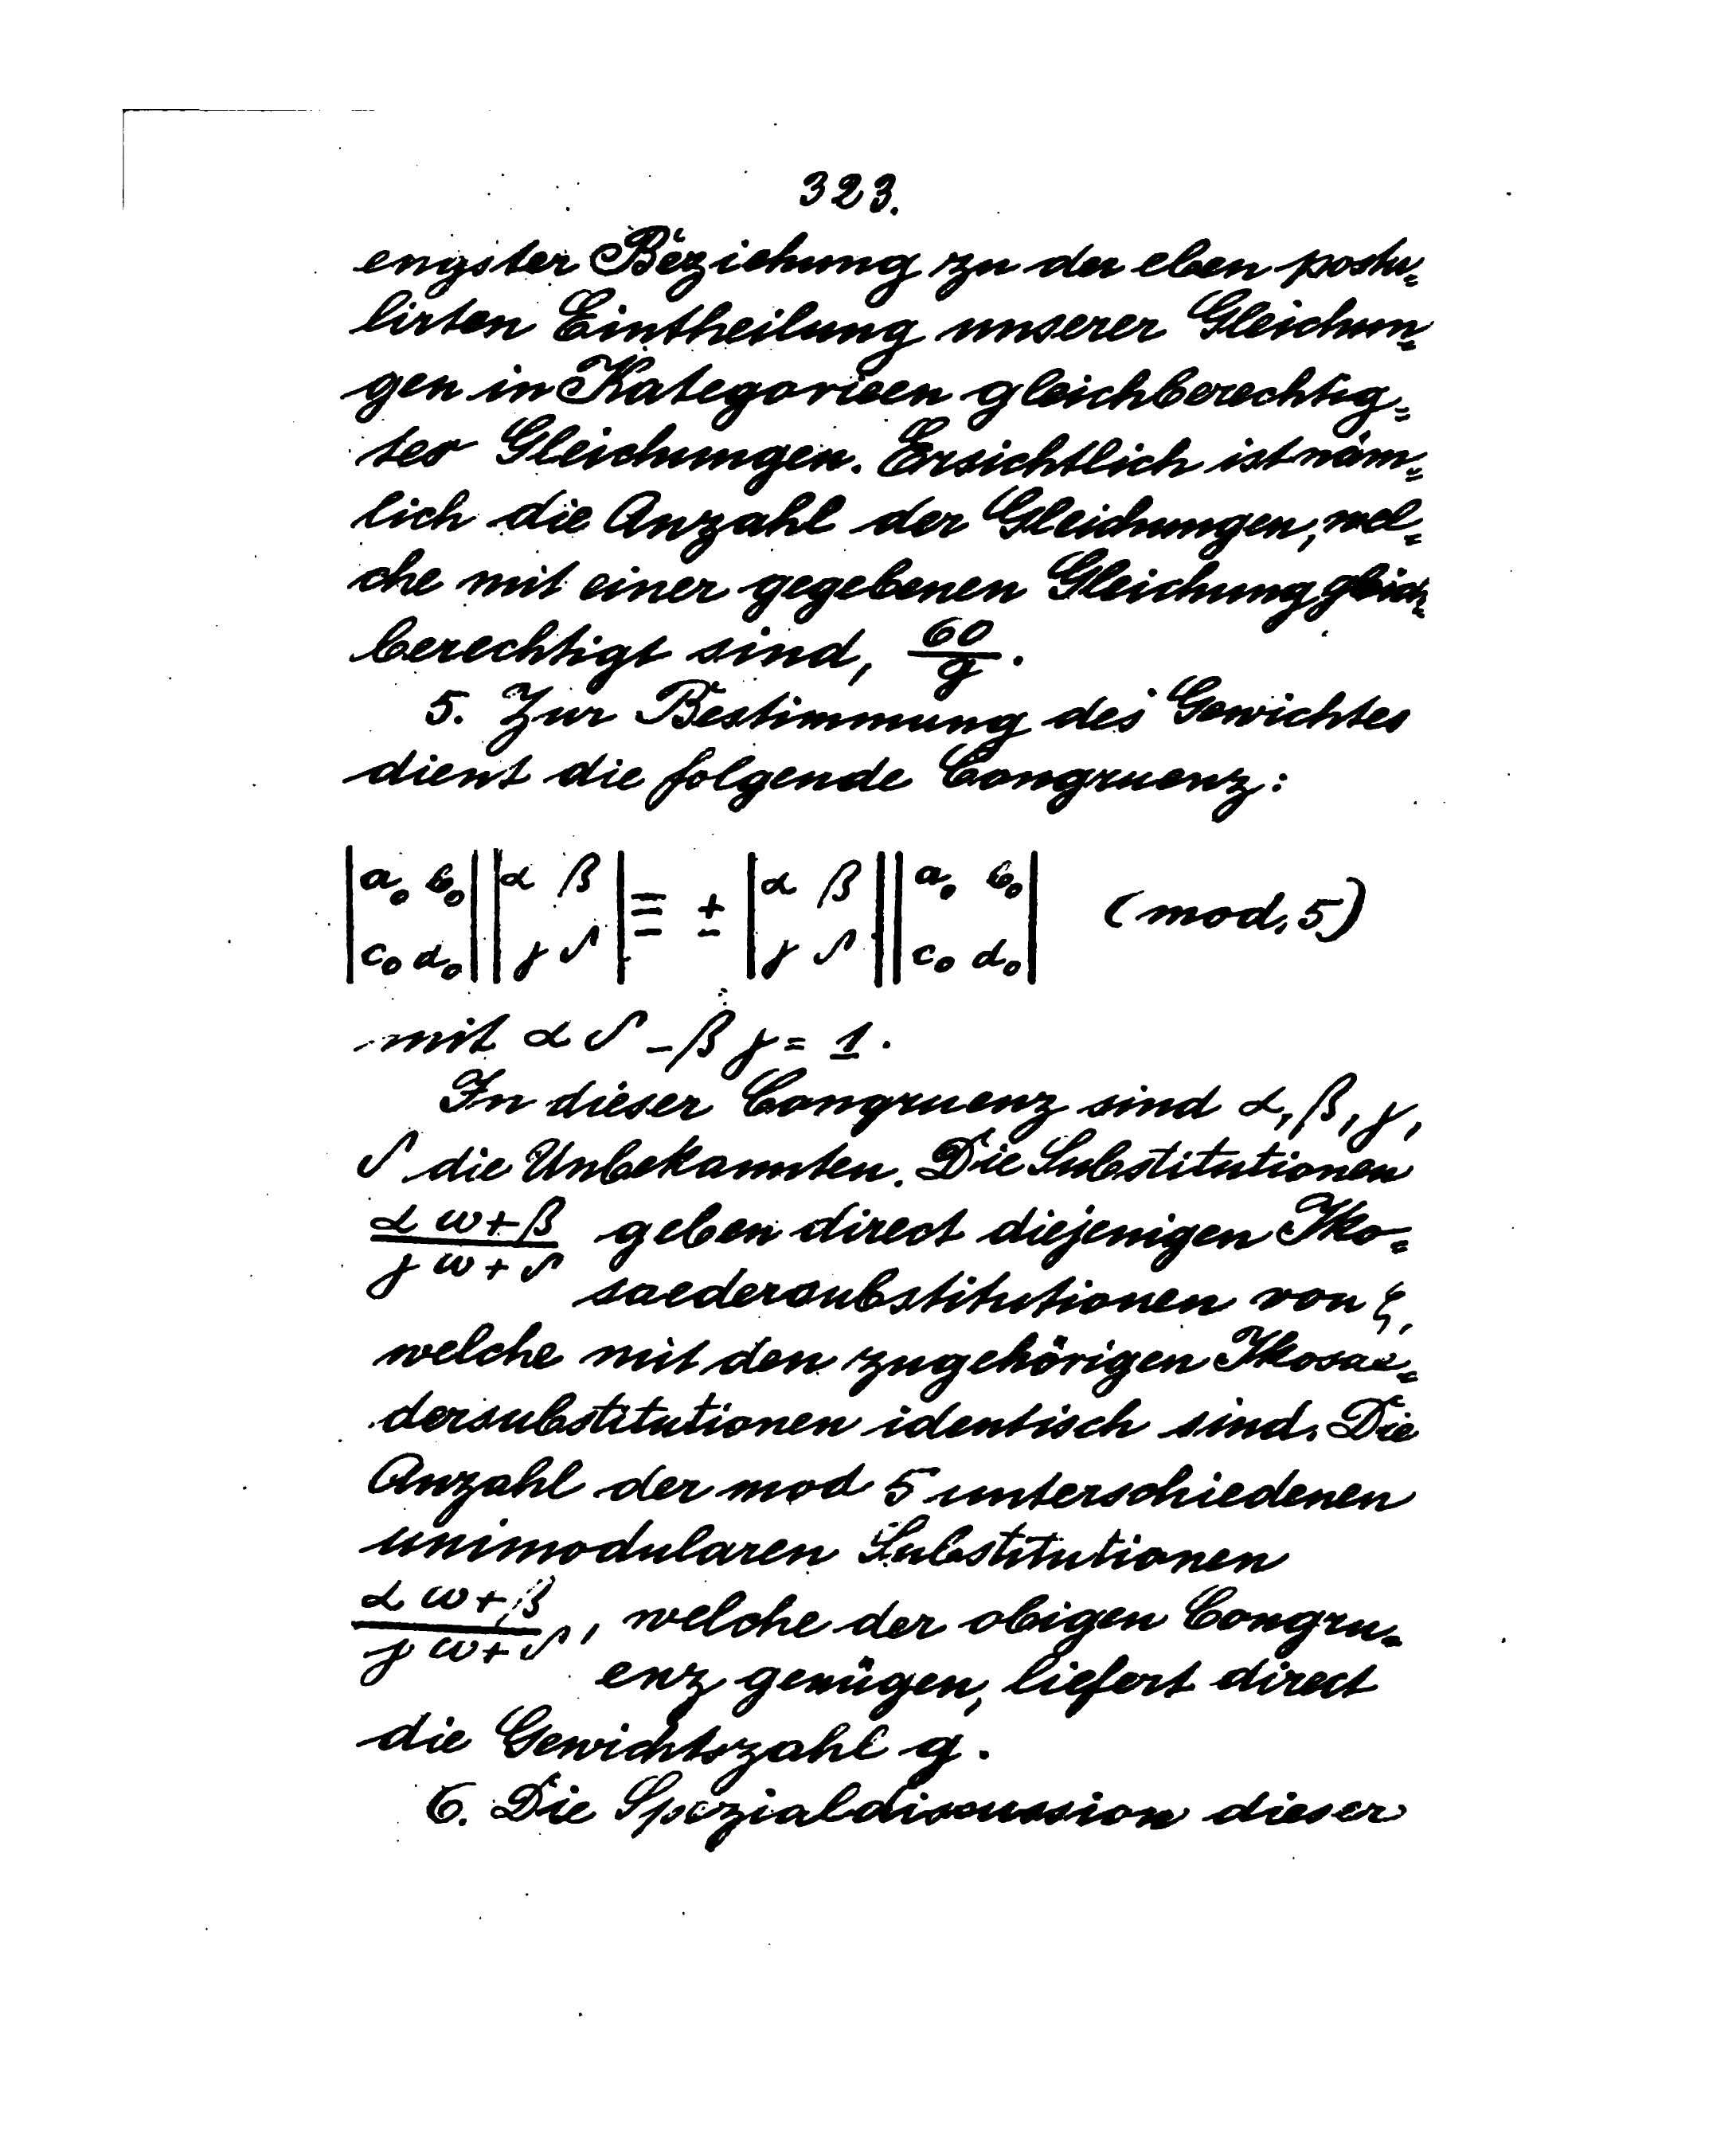 323.
engster Beziehung zu der eben postu=
lirten Eintheilung unserer Gleichun=
gen in Kategorieen gleichberechtig=
ter Gleichungen. Ersichtlich ist näm=
lich die Anzahl der Gleichungen, wel=
che mit einer gegebenen Gleichung gleich=
berechtigt sind, 60/g.
5. Zur Bestimmung des Gewichtes
dient die folgende Congruenz:
|a₀ b₀| |α β| ≡ ± |α β| |a₀ b₀| (mod. 5)
|c₀ d₀| |γ δ| |γ δ| |c₀ d₀|
mit α δ - β γ = 1.
In dieser Congruenz sind α, β, γ,
δ die Unbekannten. Die Substitutionen
(α ω + β)/(γ ω + δ) geben direct diejenigen Iko=
saedersubstitutionen von ξ,
welche mit den zugehörigen Ikosae=
dersubstitutionen identisch sind. Die
Anzahl der mod 5 unterschiedenen
unimodularen Substitutionen
(α ω + β)/(γ ω + δ), welche der obigen Congru=
enz genügen, liefert direct
die Gewichtszahl g.
6. Die Spezialdiscussion dieser